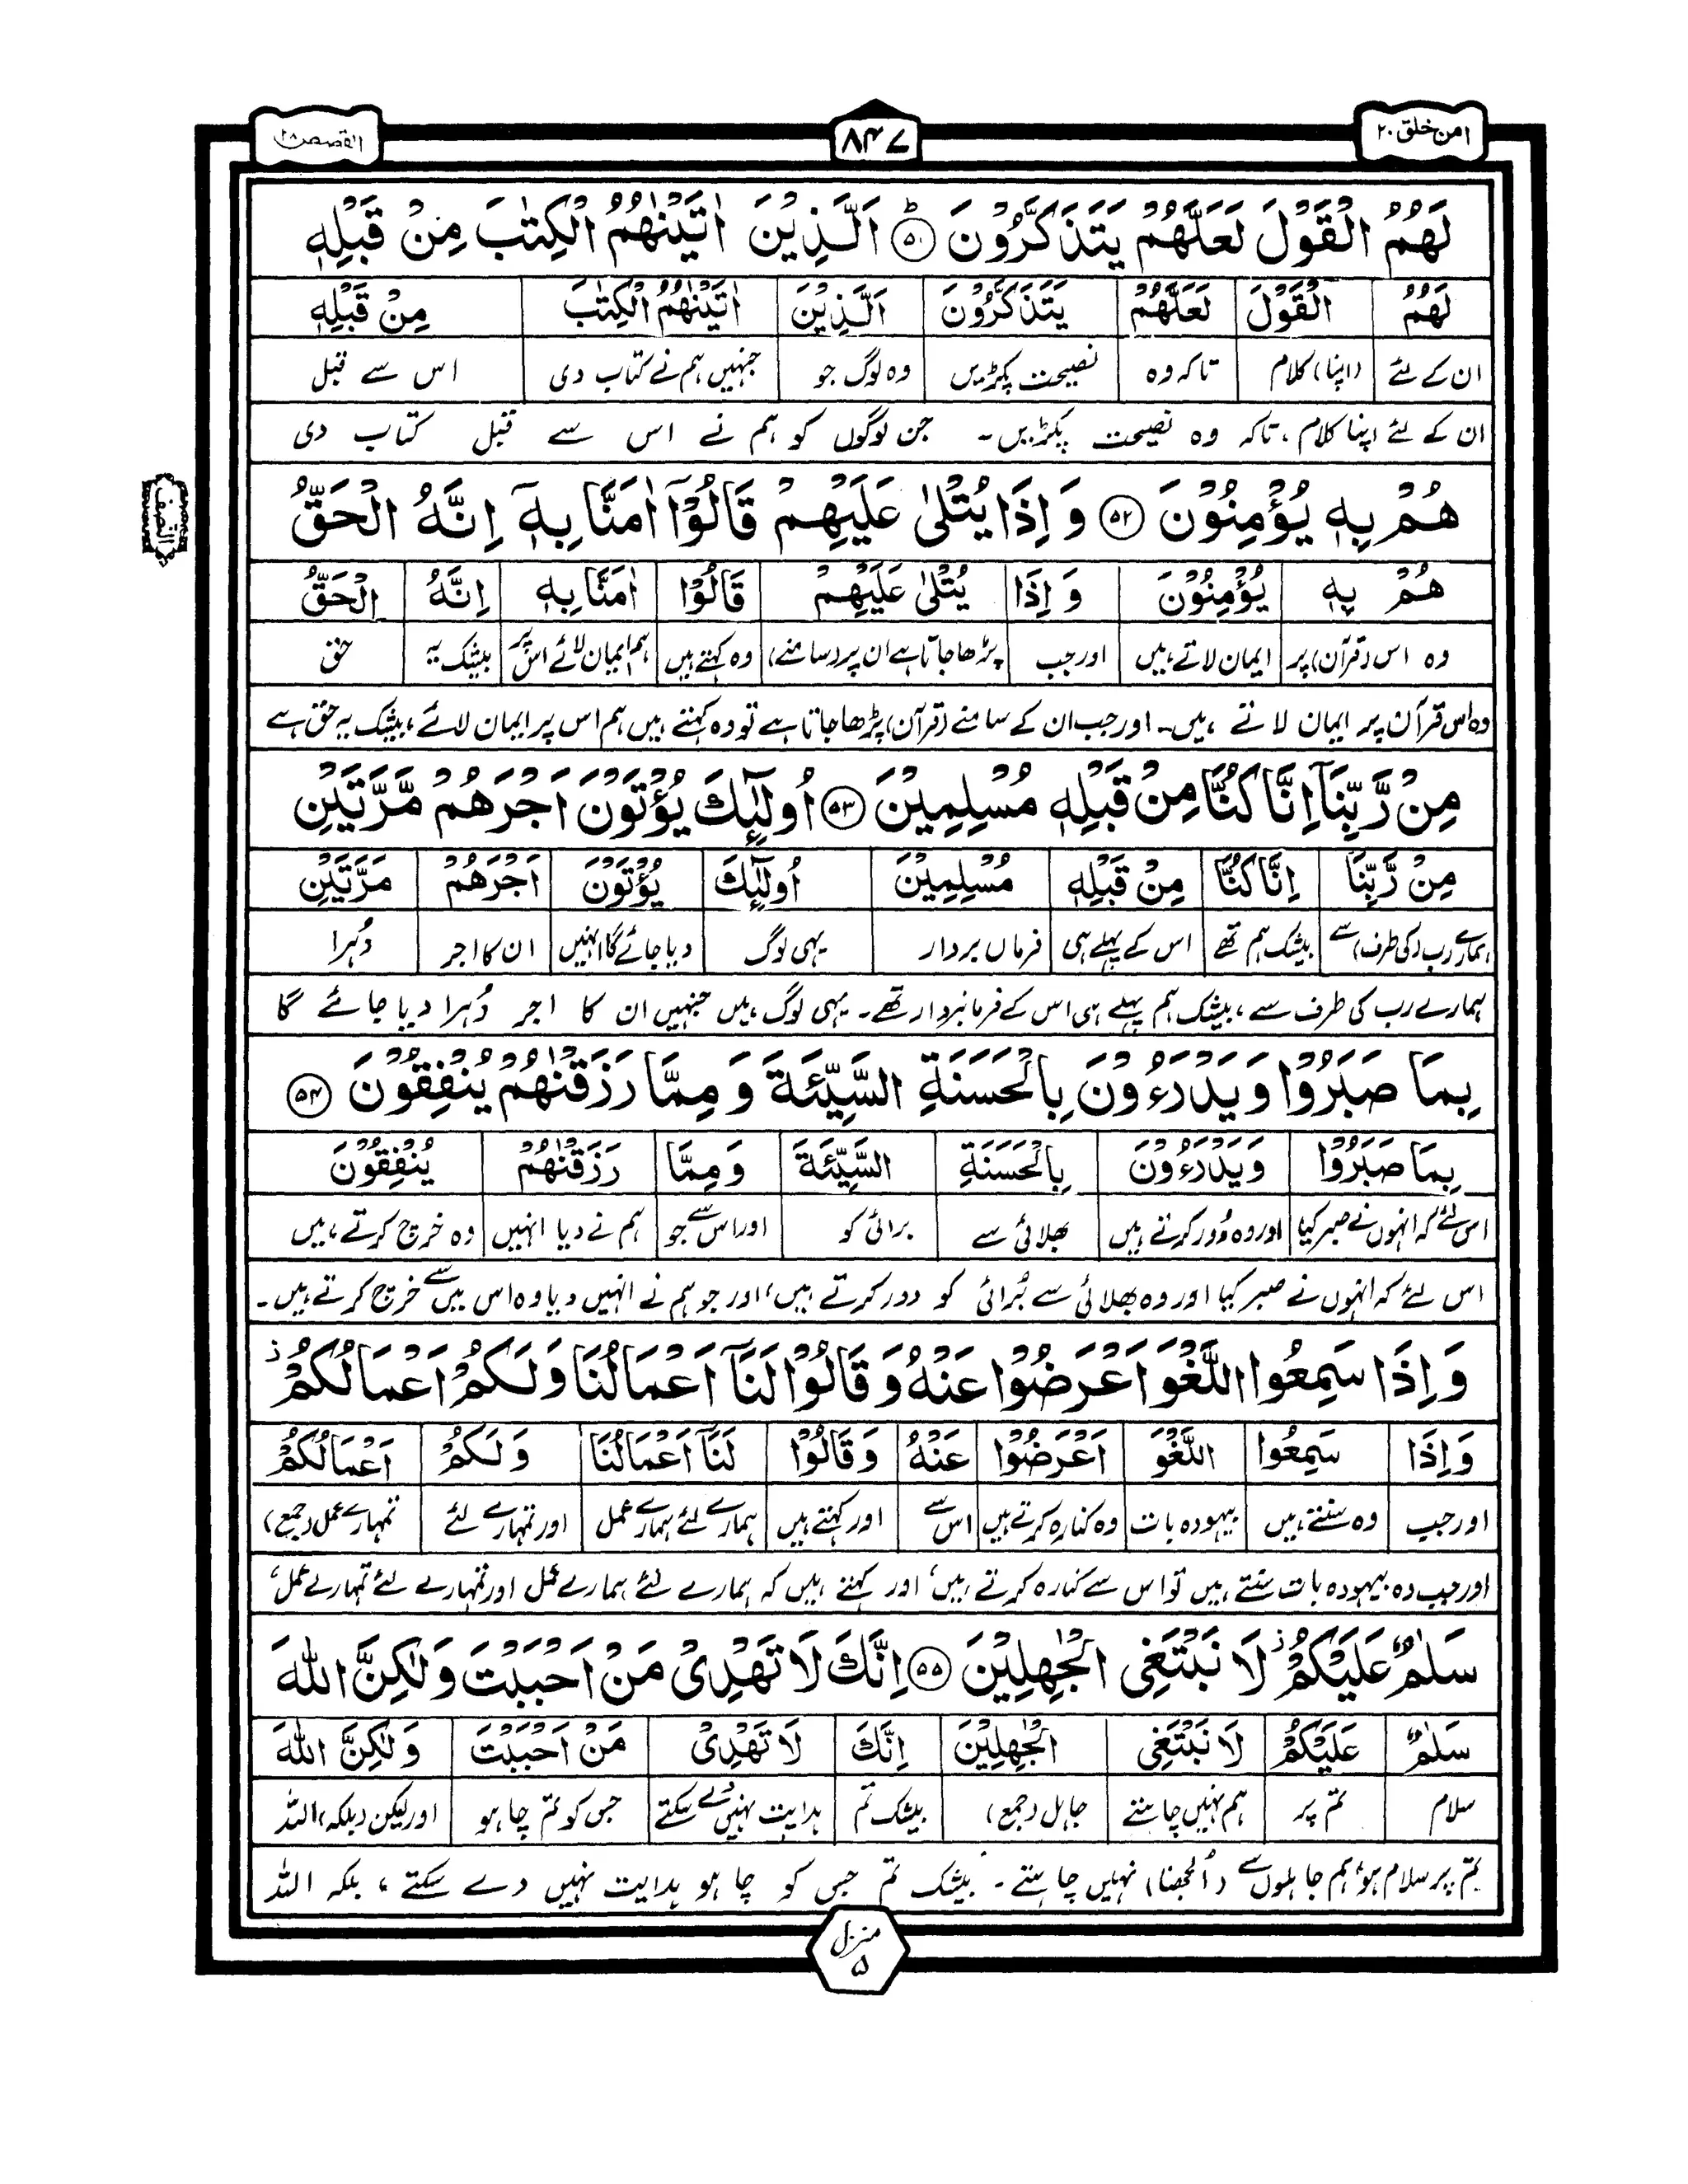 امن خلق ٢٠
٨٤٧
القصص ٢٨
لَهُمُ الْقَوْلَ لَعَلَّهُمْ يَتَذَكَّرُوْنَ ﴿۵۱﴾ اَلَّذِيْنَ اٰتَيْنٰهُمُ الْكِتٰبَ مِنْ قَبْلِهٖ
لَهُمُ الْقَوْلَ لَعَلَّهُمْ يَتَذَكَّرُوْنَ اَلَّذِيْنَ اٰتَيْنٰهُمُ الْكِتٰبَ مِنْ قَبْلِهٖ
ان کے لئے (اپنا) کلام تاکہ وہ نصیحت پکڑیں وہ لوگ جو جنہیں ہم نے کتاب دی اس سے قبل
ان کے لئے اپنا کلام، تاکہ وہ نصیحت پکڑیں۔ جن لوگوں کو ہم نے اس سے قبل کتاب دی
هُمْ بِهٖ يُؤْمِنُوْنَ ﴿۵۲﴾ وَ اِذَا يُتْلٰى عَلَيْهِمْ قَالُوْۤا اٰمَنَّا بِهٖۤ اِنَّهُ الْحَقُّ
النصف
هُمْ بِهٖ يُؤْمِنُوْنَ وَ اِذَا يُتْلٰى عَلَيْهِمْ قَالُوْا اٰمَنَّا بِهٖ اِنَّهُ الْحَقُّ
وہ اس (قرآن) پر ایمان لاتے ہیں اور جب پڑھا جاتا ہے ان پر (سامنے) وہ کہتے ہیں ہم ایمان لائے اس پر بیشک یہ حق
وہ اس قرآن پر ایمان لاتے ہیں۔ اور جب ان کے سامنے (قرآن) پڑھا جاتا ہے تو وہ کہتے ہیں ہم اس پر ایمان لائے، بیشک یہ حق ہے
مِنْ رَّبِّنَاۤ اِنَّا كُنَّا مِنْ قَبْلِهٖ مُسْلِمِيْنَ ﴿۵۳﴾ اُولٰٓئِكَ يُؤْتَوْنَ اَجْرَهُمْ مَّرَّتَيْنِ
مِنْ رَّبِّنَا اِنَّا كُنَّا مِنْ قَبْلِهٖ مُسْلِمِيْنَ اُولٰٓئِكَ يُؤْتَوْنَ اَجْرَهُمْ مَرَّتَيْنِ
ہمارے رب (کی طرف) سے بیشک ہم تھے اس کے پہلے ہی فرماں بردار یہی لوگ دیا جائے گا انہیں ان کا اجر دُہرا
ہمارے رب کی طرف سے، بیشک ہم پہلے ہی اس کے فرمانبردار تھے۔ یہی لوگ ہیں جنہیں ان کا اجر دُہرا دیا جائے گا
بِمَا صَبَرُوْا وَ يَدْرَءُوْنَ بِالْحَسَنَةِ السَّيِّئَةَ وَ مِمَّا رَزَقْنٰهُمْ يُنْفِقُوْنَ ﴿۵۴﴾
بِمَا صَبَرُوْا وَ يَدْرَءُوْنَ بِالْحَسَنَةِ السَّيِّئَةَ وَ مِمَّا رَزَقْنٰهُمْ يُنْفِقُوْنَ
اس لئے کہ انہوں نے صبر کیا اور وہ دُور کرتے ہیں بھلائی سے برائی کو اور اس سے جو ہم نے دیا انہیں وہ خرچ کرتے ہیں
اس لئے کہ انہوں نے صبر کیا اور وہ بھلائی سے بُرائی کو دور کرتے ہیں، اور جو ہم نے انہیں دیا وہ اس میں سے خرچ کرتے ہیں۔
وَ اِذَا سَمِعُوا اللَّغْوَ اَعْرَضُوْا عَنْهُ وَ قَالُوْا لَنَاۤ اَعْمَالُنَا وَ لَكُمْ اَعْمَالُكُمْ ز
وَ اِذَا سَمِعُوا اللَّغْوَ اَعْرَضُوْا عَنْهُ وَ قَالُوْا لَنَاۤ اَعْمَالُنَا وَ لَكُمْ اَعْمَالُكُمْ
اور جب وہ سنتے ہیں بیہودہ بات وہ کنارہ کرتے ہیں اس سے اور کہتے ہیں ہمارے لئے ہمارے عمل اور تمہارے لئے تمہارے عمل (جمع)
اور جب وہ بیہودہ بات سنتے ہیں تو اس سے کنارہ کرتے ہیں، اور کہتے ہیں کہ ہمارے لئے ہمارے عمل اور تمہارے لئے تمہارے عمل،
سَلٰمٌ عَلَيْكُمْ ز لَا نَبْتَغِى الْجٰهِلِيْنَ ﴿۵۵﴾ اِنَّكَ لَا تَهْدِىْ مَنْ اَحْبَبْتَ وَ لٰكِنَّ اللّٰهَ
سَلٰمٌ عَلَيْكُمْ لَا نَبْتَغِى الْجٰهِلِيْنَ اِنَّكَ لَا تَهْدِىْ مَنْ اَحْبَبْتَ وَ لٰكِنَّ اللّٰهَ
سلام تم پر ہم نہیں چاہتے جاہل (جمع) بیشک تم ہدایت نہیں دے سکتے جس کو تم چاہو اور لیکن (بلکہ) اللہ
تم پر سلام ہو، ہم جاہلوں سے (اُلجھنا) نہیں چاہتے۔ بیشک تم جس کو چاہو ہدایت نہیں دے سکتے، بلکہ اللہ
منزل
۵